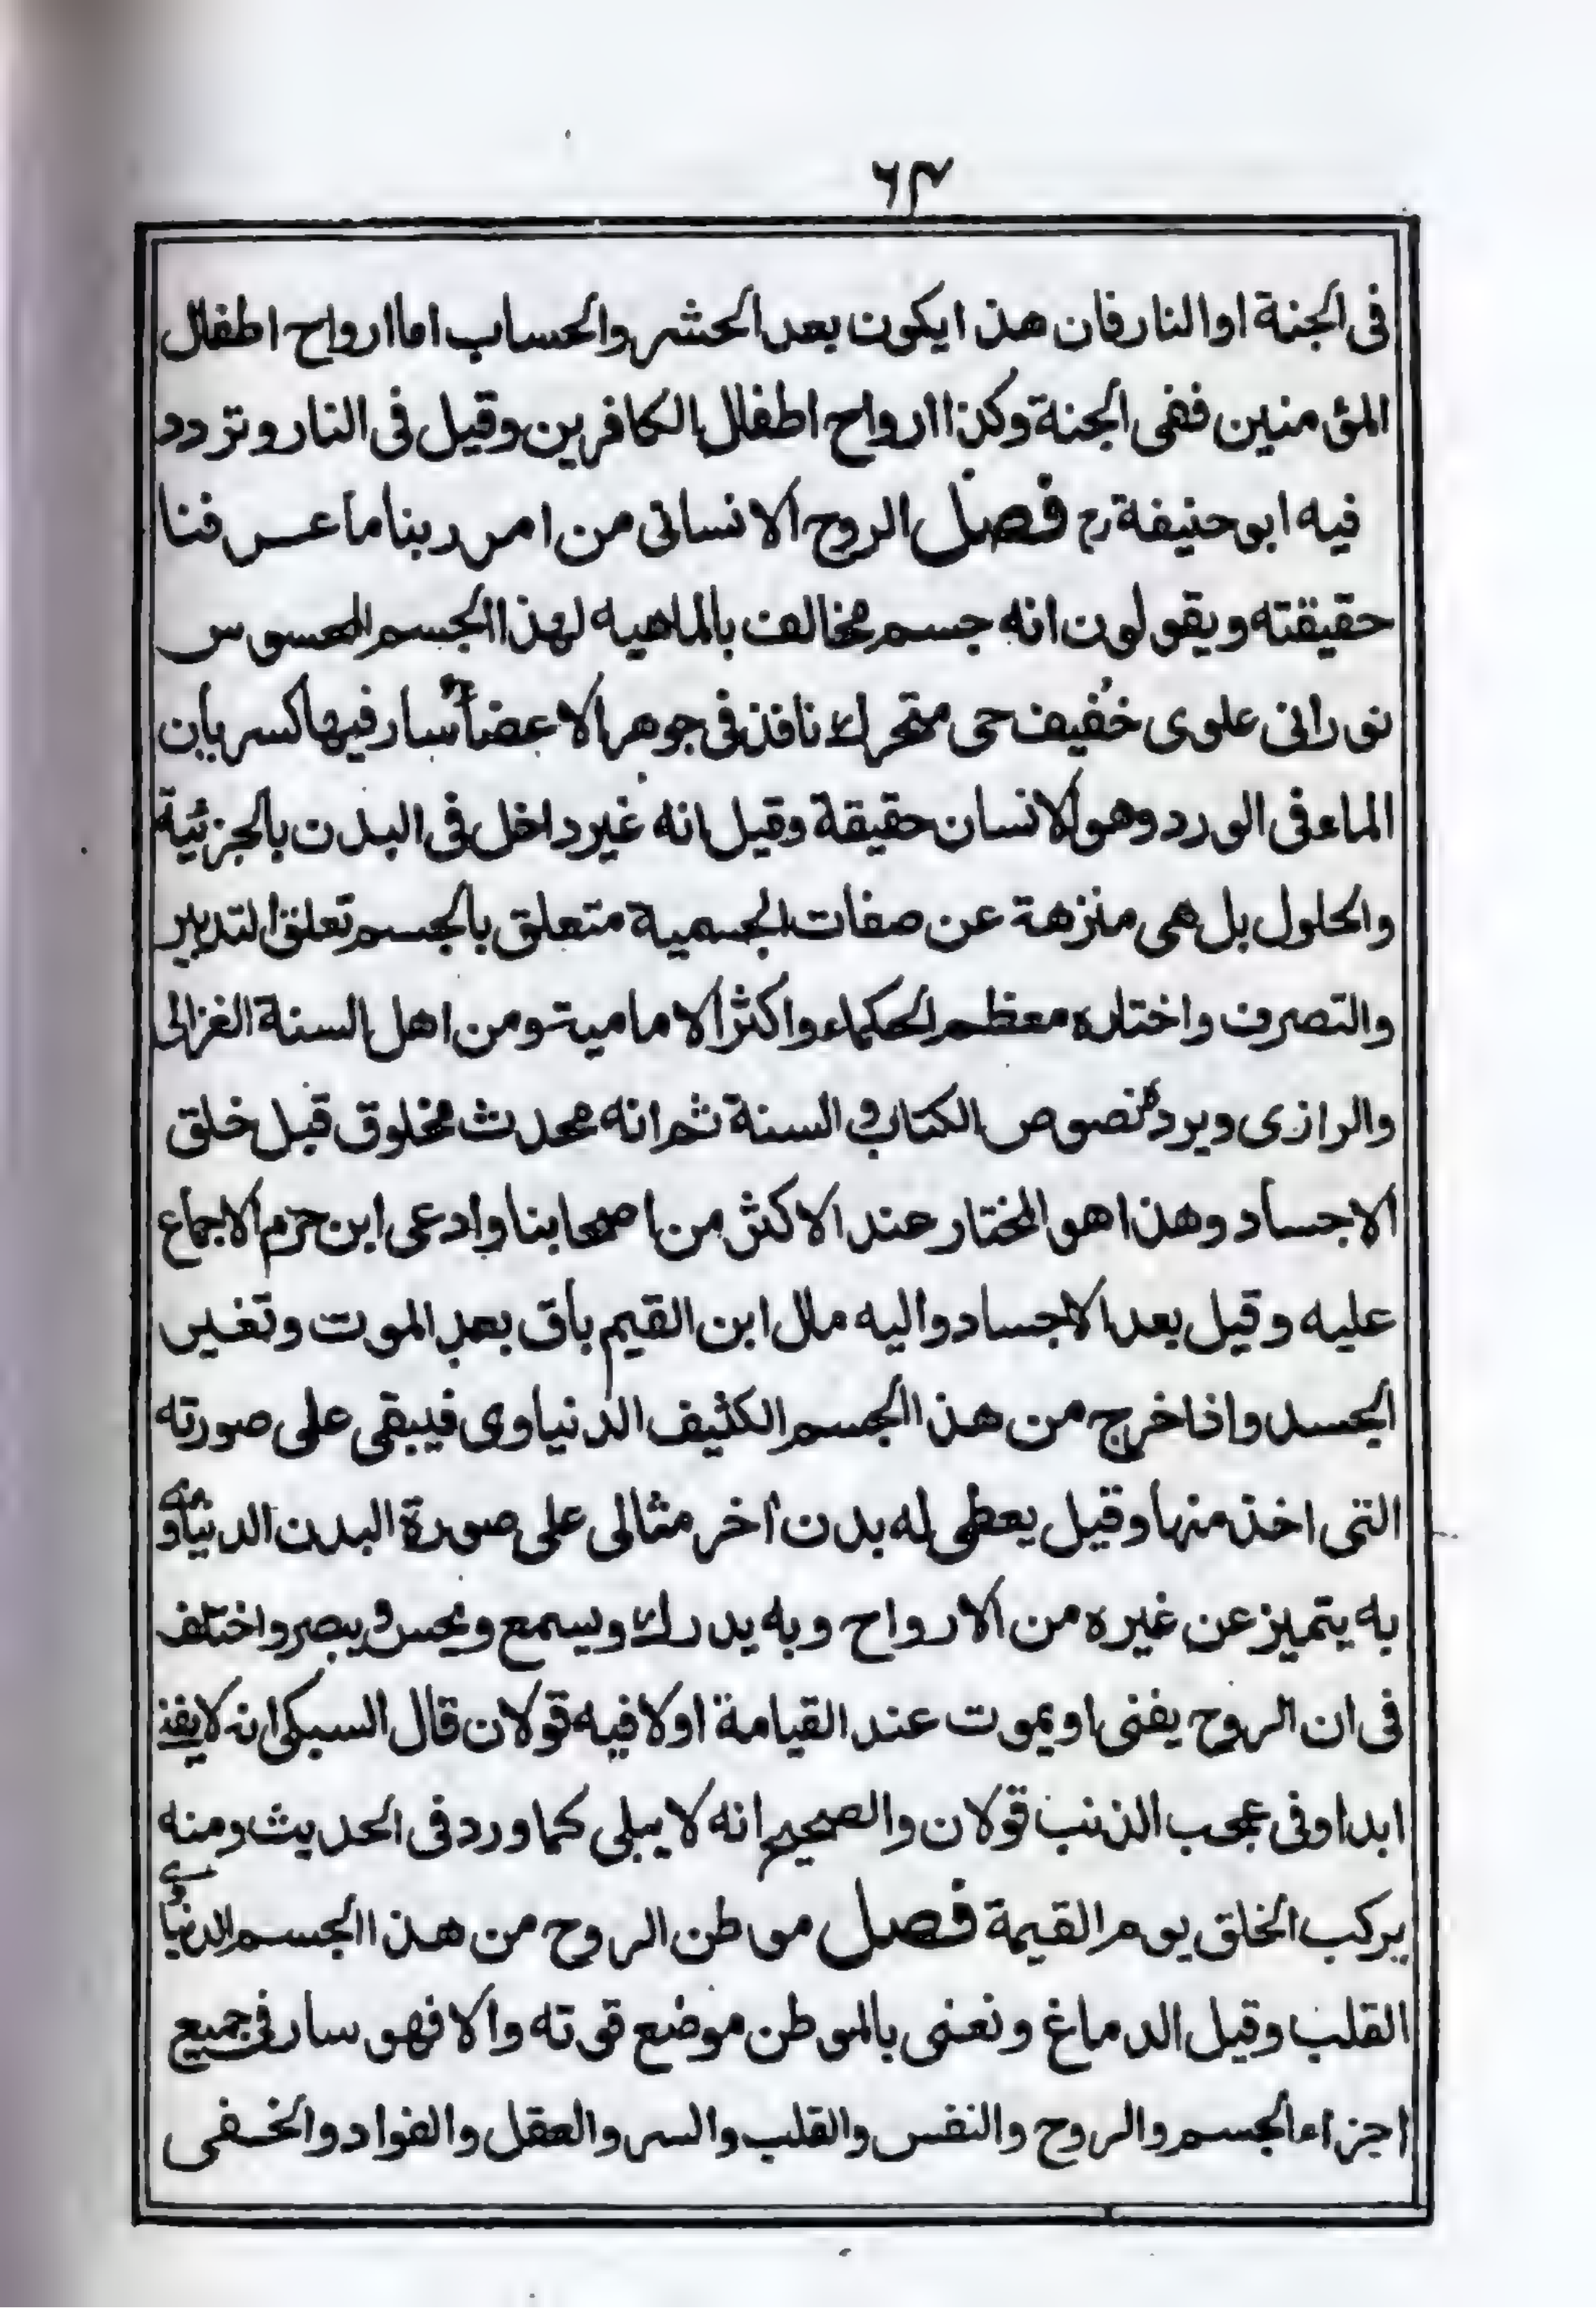 ٦٣
فى الجنة او النار فان هذا يكون بعد الحشر والحساب اما ارواح اطفال
المؤمنين ففى الجنة وكذا ارواح اطفال الكافرين وقيل فى النار وتردد
فيه ابو حنيفة رح فصل الروح الانسانى من امر ربنا ما عرفنا
حقيقته ويقولون انه جسم مخالف بالماهيه لهذا الجسم المحسوس
نورانى علوى خفيف حى متحرك نافذ فى جوهر الاعضاء سار فيها كسريان
الماء فى الورد وهو الانسان حقيقة وقيل انه غير داخل فى البدن بالجزئية
والحلول بل هى منزهة عن صفات الجسمية متعلق بالجسم تعلق التدبير
والتصرف واختاره معظم الحكماء واكثر الامامية ومن اهل السنة الغزالى
والرازى ويرده نصوص الكتاب و السنة ثم انه محدث مخلوق قبل خلق
الاجساد وهذا هو المختار عند الاكثر من اصحابنا وادعى ابن حزم الاجماع
عليه وقيل بعد الاجساد واليه مال ابن القيم باق بعد الموت وتغير
الجسد واذا خرج من هذا الجسم الكثيف الدنياوى فيبقى على صورته
التى اخذ منها وقيل يعطى له بدن آخر مثالى على صورة البدن الدنياوى
به يتميز عن غيره من الارواح وبه يدرك ويسمع ويحس و يبصر واختلف
فى ان الروح يفنى او يموت عند القيامة او لا فيه قولان قال السبكى انه لا يفنى
ابدا وفى عجب الذنب قولان والصحيح انه لا يبلى كما ورد فى الحديث ومنه
يركب الخلق يوم القيمة فصل موطن الروح من هذا الجسم الدنياوى
القلب وقيل الدماغ ونعنى بالموطن موضع قوته والا فهو سار فى جميع
اجزاء الجسم والروح والنفس والقلب والسر والعقل والفواد والخفى